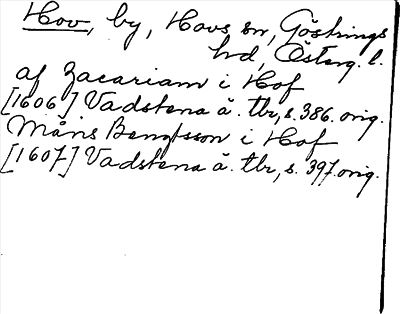 Hov, by, Hovs sn, Göstrings
hd, Österg. l.
af Zacariam i Hof
[1606] Vadstena ä. tb, s. 386. orig.
Måns Bengtsson i Hof
[1607] Vadstena ä. tb, s. 397. orig.